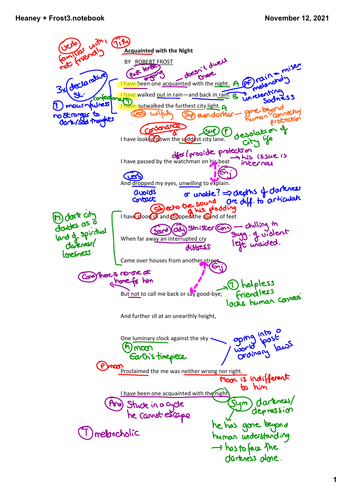 Heaney + Frost3.notebook
November 12, 2021
Verb
Title
familiar with,
not friendly
Acquainted with the Night
BY ROBERT FROST
doesn't dwell
there
3x declarative
St.
I have been one acquainted with the night. A
PF rain = misery
melancholy
I have walked out in rain—and back in rain. B
unrelenting
Sadness
T mournfulness
I have outwalked the furthest city light. A
no stranger to
Dark/sad thoughts
Verb wilfully
Sym
gone beyond
human connectivity
protection
Consonance
Sup
P desolation of
City life
I have looked down the saddest city lane.
offer/provide protection
I have passed by the watchman on his beat
his issue is
internal
Enj
Verb
And dropped my eyes, unwilling to explain.
avoids
contact
or unable? → depths of darkness
are diff. to articulate
echo the sound
of his plodding
M dark city
land of spiritual
darkness/
loneliness
I have stood still and stopped the sound of feet
Sound
Adj
Sinister
Con
chilling
Sugg. of violent
left unaided.
When far away an interrupted cry
distress
Came over houses from another street,
Enj
Con there is no-one at
home for him
But not to call me back or say good-bye;
T helpless
friendless
lacks human connect
And further still at an unearthly height,
One luminary clock against the sky
going into a
world past
ordinary laws
M moon
Earth's timepiece
P moon
Proclaimed the time was neither wrong nor right.
Moon is indifferent
to him
I have been one acquainted with the night.
Ana
Stuck in a cycle
he cannot escape
Sym darkness/
depression
T melancholic
he has gone beyond
human understanding
→ has to face the
darkness alone.
1